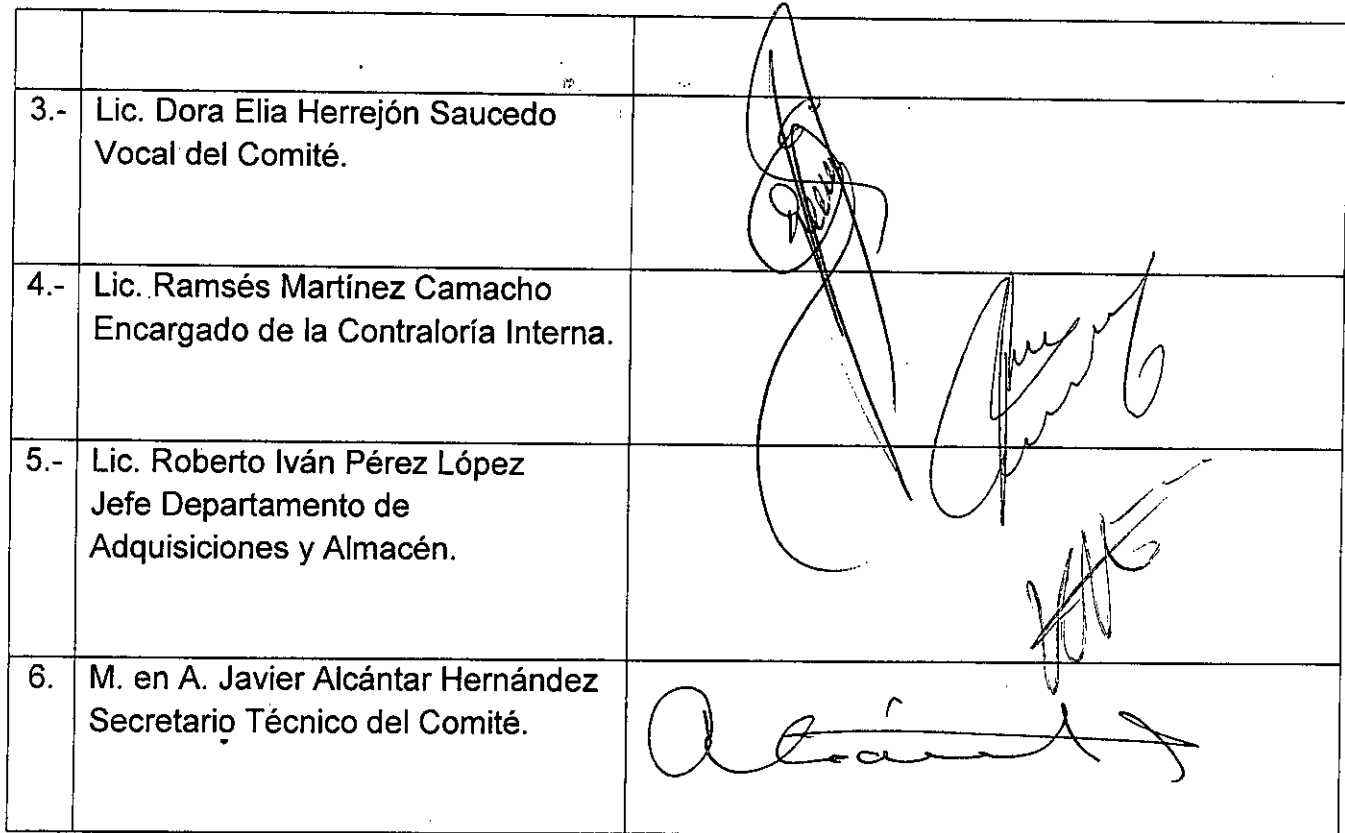 3.- Lic. Dora Elia Herrejón Saucedo
Vocal del Comité.
4.- Lic. Ramsés Martínez Camacho
Encargado de la Contraloría Interna.
5.- Lic. Roberto Iván Pérez López
Jefe Departamento de
Adquisiciones y Almacén.
6. M. en A. Javier Alcántar Hernández
Secretario Técnico del Comité.